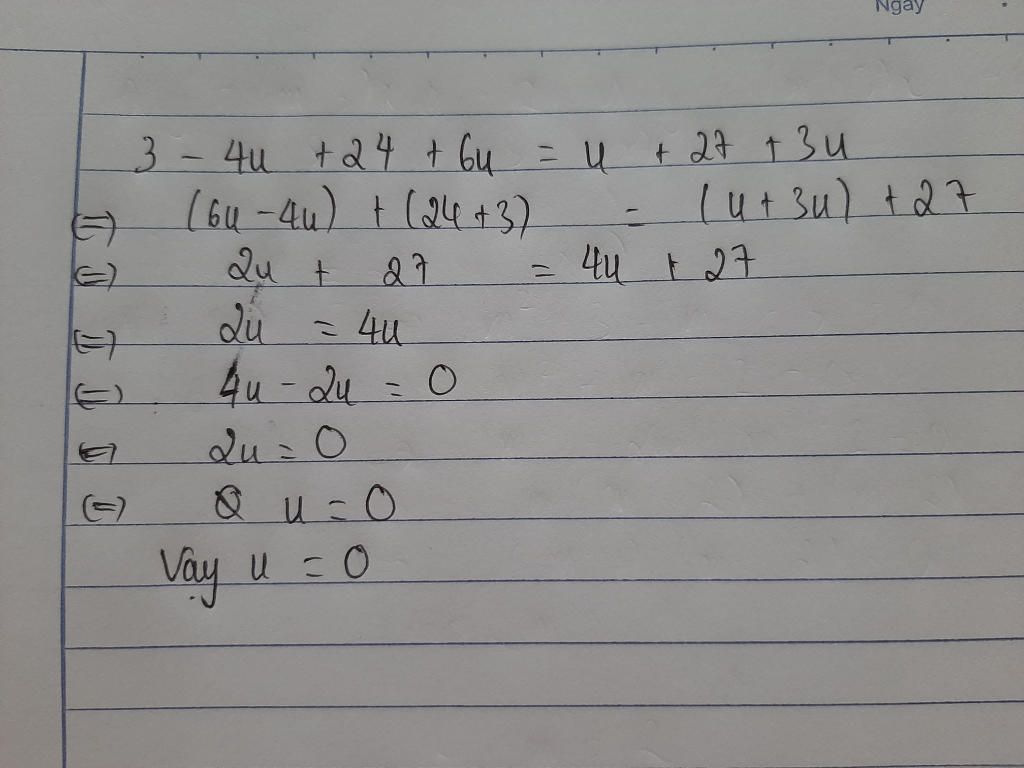 Ngày
3 - 4u + 24 + 6u = u + 27 + 3u
(=) (6u - 4u) + (24 + 3) = (u + 3u) + 27
(=) 2u + 27 = 4u + 27
(=) 2u = 4u
(=) 4u - 2u = 0
(=) 2u = 0
(=) u = 0
Vậy u = 0